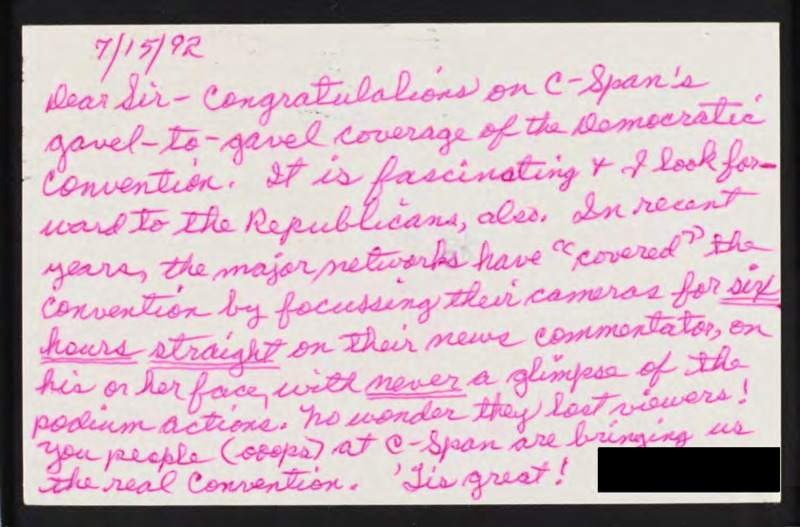 7/15/92
Dear Sir - Congratulations on C-Span's
gavel-to-gavel coverage of the Democratic
Convention. It is fascinating & I look for-
ward to the Republicans, also. In recent
years, the major networks have "covered" the
convention by focussing their cameras for six
hours straight on their news commentator, on
his or her face, with never a glimpse of the
podium actions. No wonder they lost viewers!
You people (ooops) at C-Span are bringing us
the real Convention. 'Tis great!